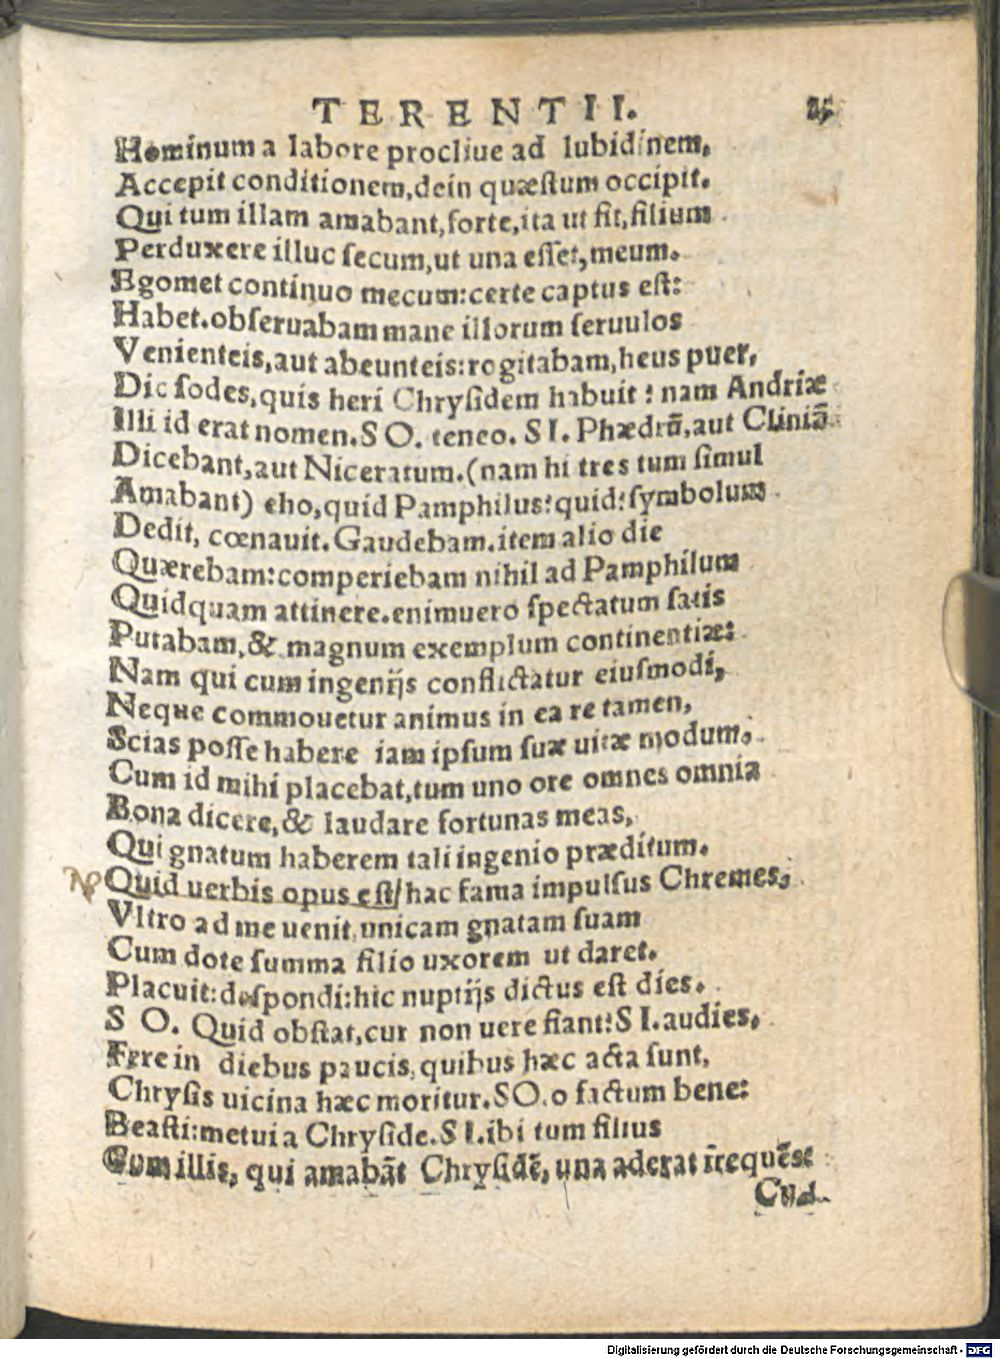 TERENTII. 25
Hominum a labore procliue ad lubidinem,
Accepit conditionem, dein quæſtum occipit.
Qui tum illam amabant, forte, ita ut fit, filium
Perduxere illuc ſecum, ut una eſſet, meum.
Egomet continuo mecum: certe captus eſt:
Habet. obſeruabam mane illorum ſeruulos
Venienteis, aut abeunteis: rogitabam, heus puer,
Dic ſodes, quis heri Chryſidem habuit? nam Andriæ
Illi id erat nomen. SO. teneo. SI. Phædrū, aut Cliniā
Dicebant, aut Niceratum. (nam hi tres tum ſimul
Amabant) eho, quid Pamphilus? quid? ſymbolum
Dedit, cœnauit. Gaudebam. item alio die
Quærebam: comperiebam nihil ad Pamphilum
Quidquam attinere. enimuero ſpectatum ſatis
Putabam, & magnum exemplum continentiæ:
Nam qui cum ingenijs conflictatur eiuſmodi,
Neque commouetur animus in ea re tamen,
Scias poſſe habere iam ipſum ſuæ uitæ modum.
Cum id mihi placebat, tum uno ore omnes omnia
Bona dicere, & laudare fortunas meas,
Qui gnatum haberem tali ingenio præditum.
Quid uerbis opus eſt/ hac fama impulſus Chremes,
Vltro ad me uenit, unicam gnatam ſuam
Cum dote ſumma filio uxorem ut daret.
Placuit: deſpondi: hic nuptijs dictus eſt dies.
SO. Quid obſtat, cur non uere fiant? SI. audies,
Fere in diebus paucis, quibus hæc acta ſunt,
Chryſis uicina hæc moritur. SO. o factum bene:
Beaſti: metui a Chryſide. SI. ibi tum filius
Cum illis, qui amabāt Chryſidē, una aderat frequēs:
Digitalisierung gefördert durch die Deutsche Forschungsgemeinschaft - DFG